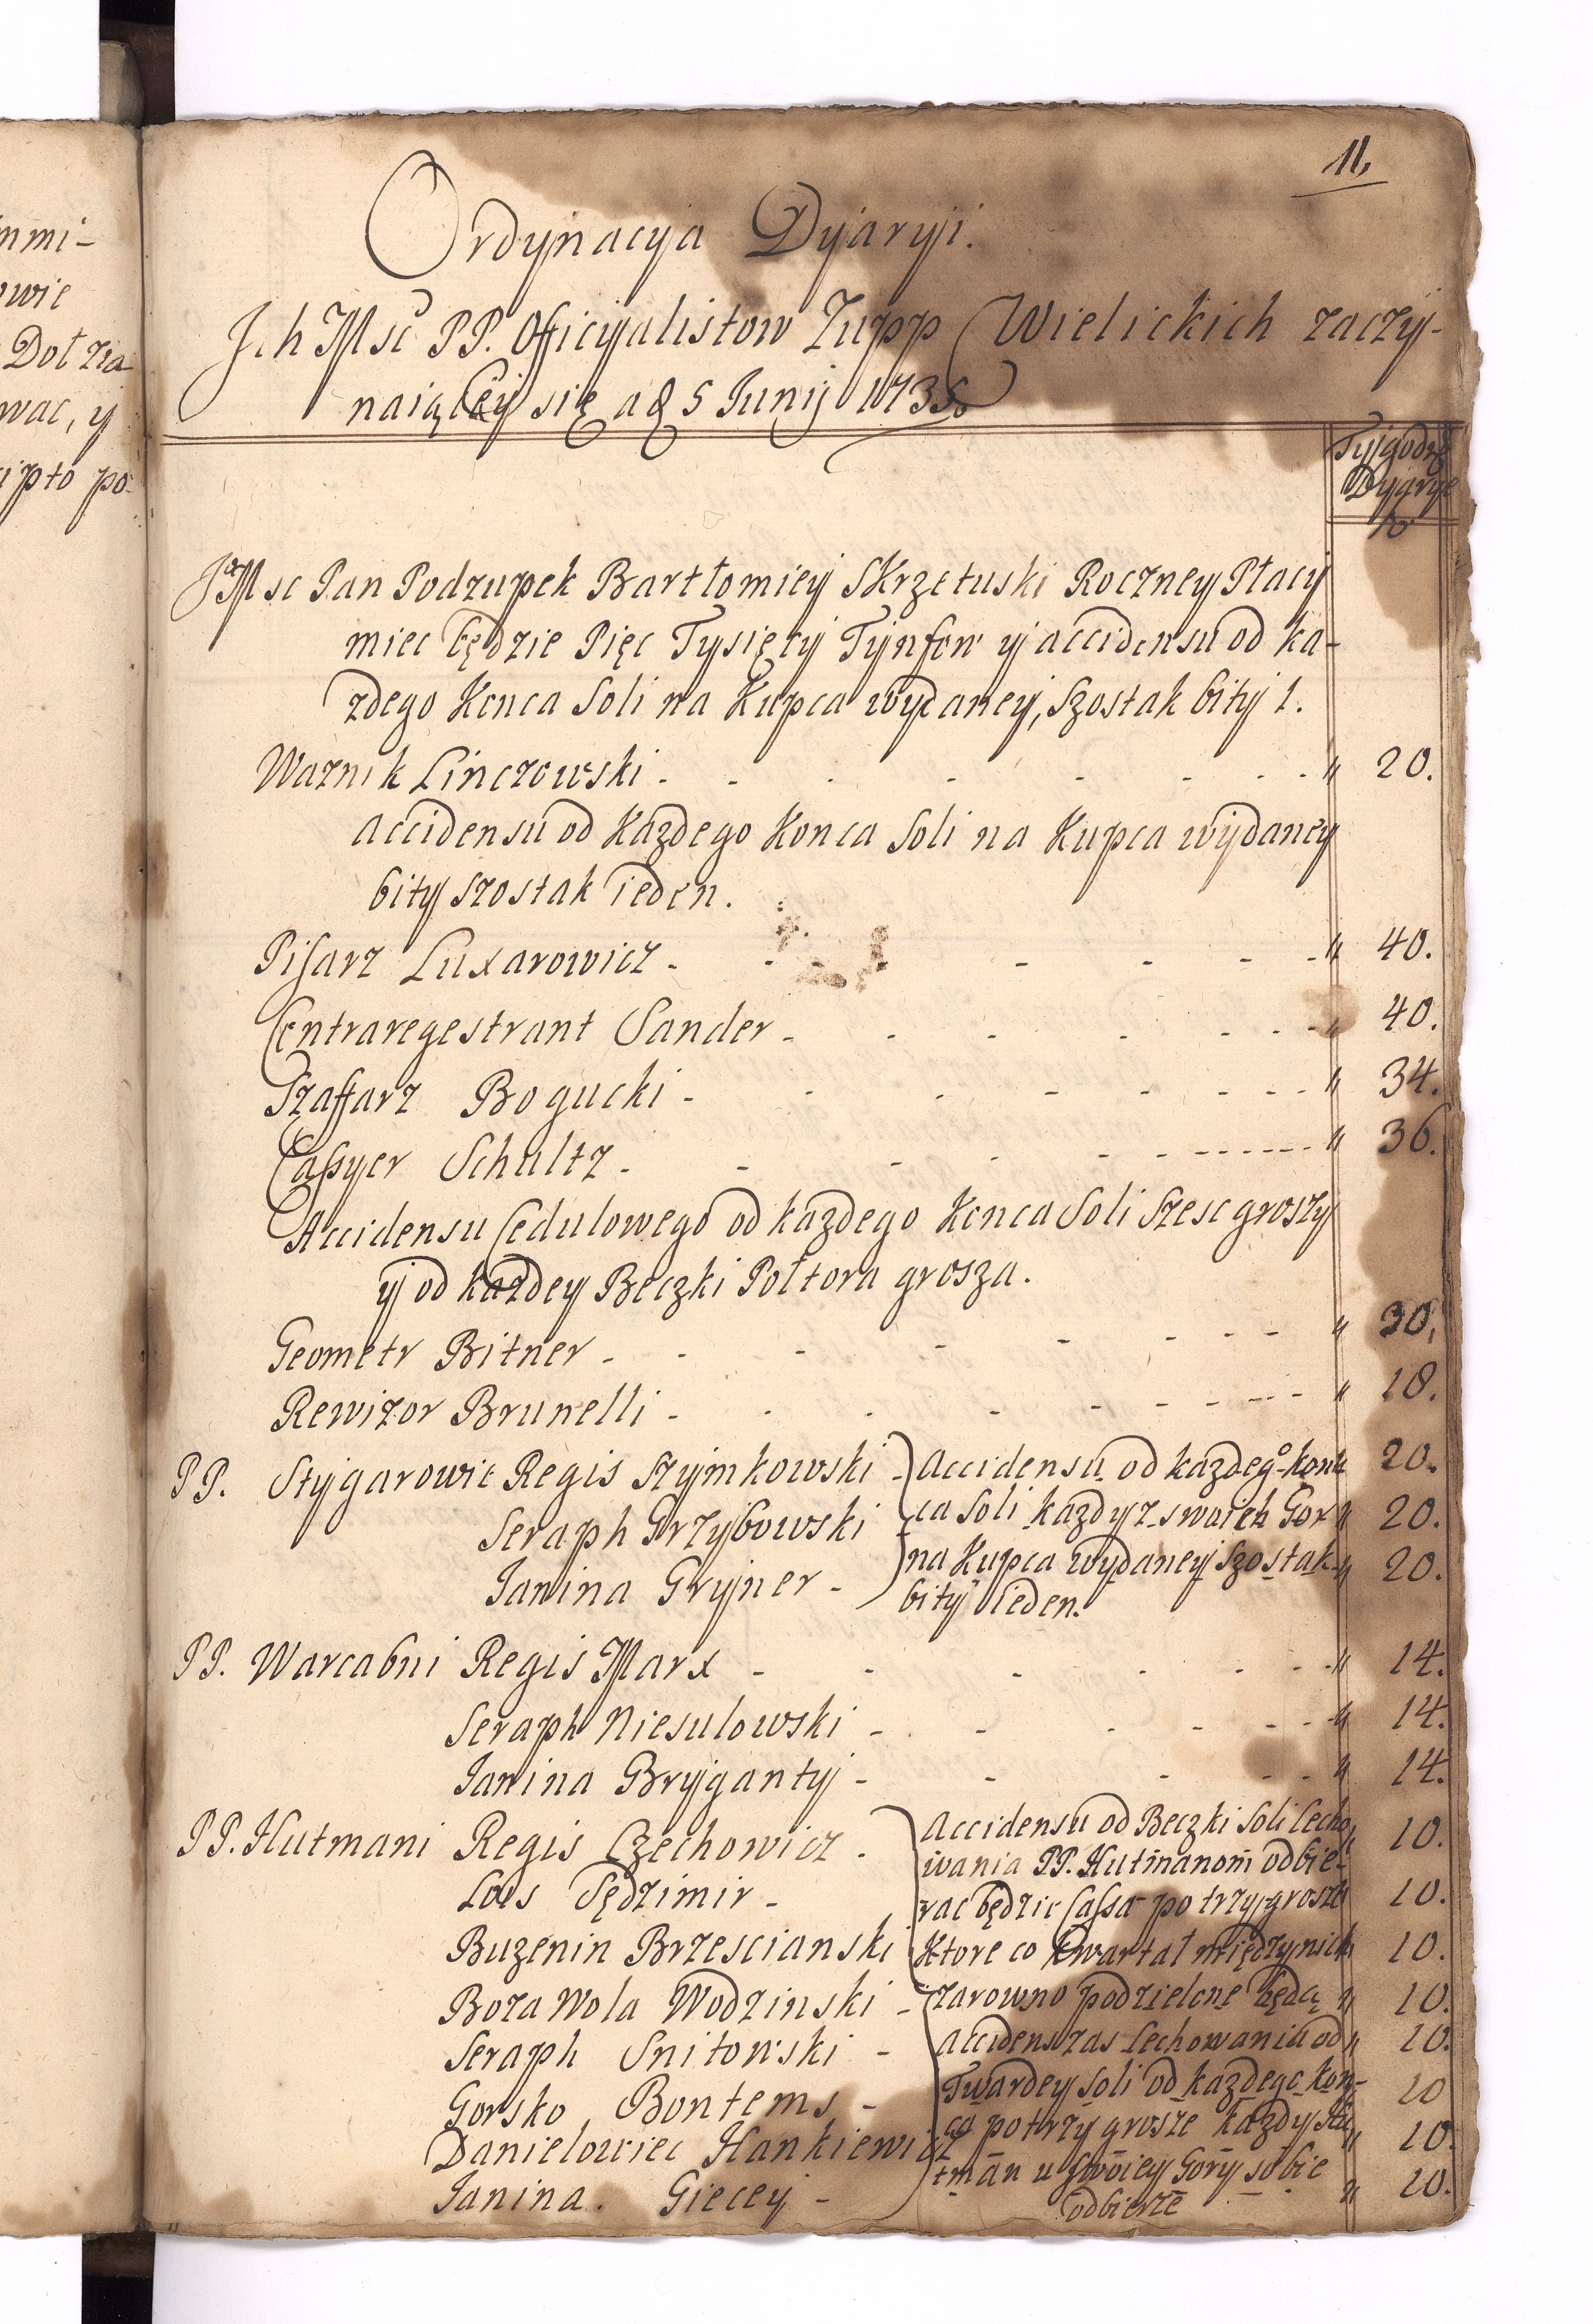 mmi-
owie
Dot zia
wac, y
ipto po-
11.
Ordynacya Dyaryi.
Ich Msc PP. Officyalistow Zupp Wielickich zaczy-
naiącey się a d 5 Junij 1735.
Tygodn
Dyarye
Jo Msc Pan Podzupek Bartłomiey Skrzetuski Roczney Płacy
miec będzie Pięc Tysięcy Tynfow y accidensu od ka-
zdego Konca Soli na Kupca wydaney, Szostak bity 1.
Waznik Linczowski - - - - - - - - - " 20.
accidensu od Kazdego Konca Soli na Kupca wydaney
bity szostak ieden.
Pisarz Luxarowicz - - - - - - - " 40.
Contraregestrant Sander - - - - - - - " 40.
Szaffarz Bogucki - - - - - - - - " 34.
Cassyer Schultz - - - - - - - - " 36.
Accidensu Cedulowego od kazdego Konca Soli Szesc groszy
y od kazdey Beczki Połtora grosza.
Geometr Bitner - - - - - - - - " 30.
Rewizor Brunelli - - - - - - - - " 18.
PP. Stygarowie Regis Szymkowski - Accidensu od kazdego kon- 20.
Seraph Grzybowski ca Soli kazdy z swoich Gor " 20.
Janina Gryner - na Kupca wydaney Szostak " 20.
bity ieden.
PP. Warcabni Regis Marx - - - - - - " 14.
Seraph Niesulowski - - - - - - " 14.
Janina Bryganty - - - - - " 14.
PP. Hutmani Regis Czechowicz - Accidensu od Beczki Soli Cecho- 10.
wania PP. Hutmanom odbie-
Lois Sędzimir - rac będzie Cassa po trzy grosze 10.
Buzenin Brzescianski Ktore co kwartał między nich 10.
Boza Wola Wodzinski - zarowno podzielone będą " 10.
Seraph Snitowski - Accidens zas Cechowania od " 10.
Gorsko Bontems - Twardey Soli od kazdego kon- 10
Danielowiec Hankiewicz ca po trzy grosze kazdy Hu- " 10.
Janina. Giecey - tman u swoiey Gory sobie " 10.
odbierze